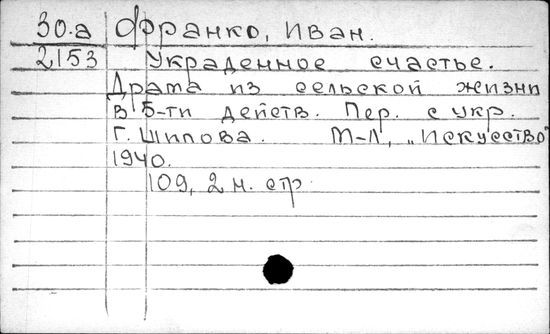 30.а Франко, Иван.
2153 Украденное счастье.
Драма из сельской жизни
в 5-ти действ. Пер. с укр.
Г. Шипова. М-Л, „Искусство"
1940.
109, 2 н. стр.